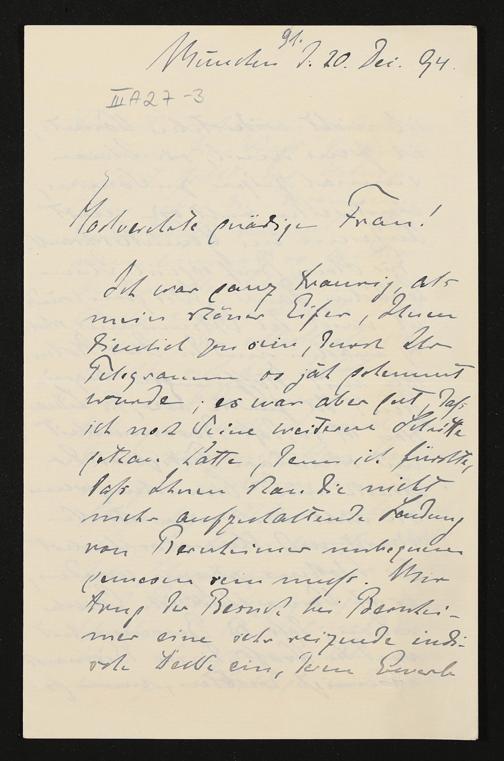 91.
München d. 20. Dec. 94.
III A 27-3
Hochverehrte gnädige Frau!
Ich war ganz traurig, als
mein schöner Eifer, Ihnen
dienlich zu sein, durch Ihr
Telegramm so jäh gehemmt
wurde; es war aber gut, daß
ich noch keine weiteren Schritte
gethan hatte, denn ich fürchte,
daß Ihnen schon die nicht
mehr aufzuhaltende Sendung
von Bernheimer unbequem
gewesen sein muß. Mir
trug der Besuch bei Bernhei-
mer eine sehr reizende indi-
sche Decke ein, deren Erwerb